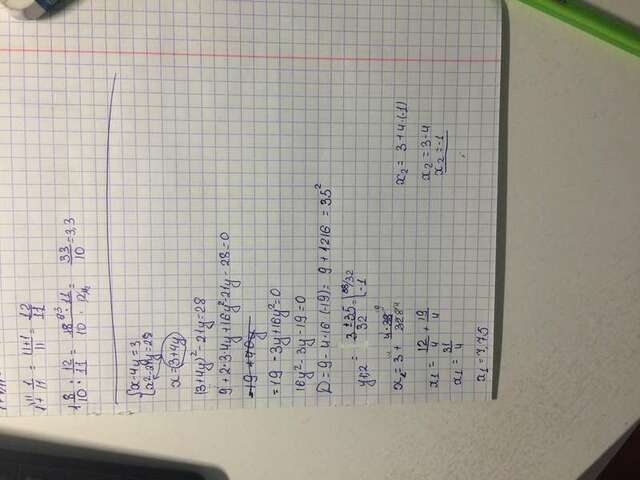 1 + 1/11 = 11+1/11 = 12/11
18/10 : 12/11 = 18³·11/10·12₂ = 33/10 = 3,3
{x-4y=3
{x²-21y=28
x=3+4y
(3+4y)²-21y=28
9+2·3·4y+16y²-21y-28=0
=19-3y+16y²=0
16y²-3y-19=0
D=9-4·16·(-19)=9+1216=35²
y1,2=3±35/32={38/32
-1
x₁=3+4·38/32
x₂=3+4·(-1)
x₁=12/4+19/4
x₂=3-4
x₁=31/4
x₂=-1
x₁=7,75